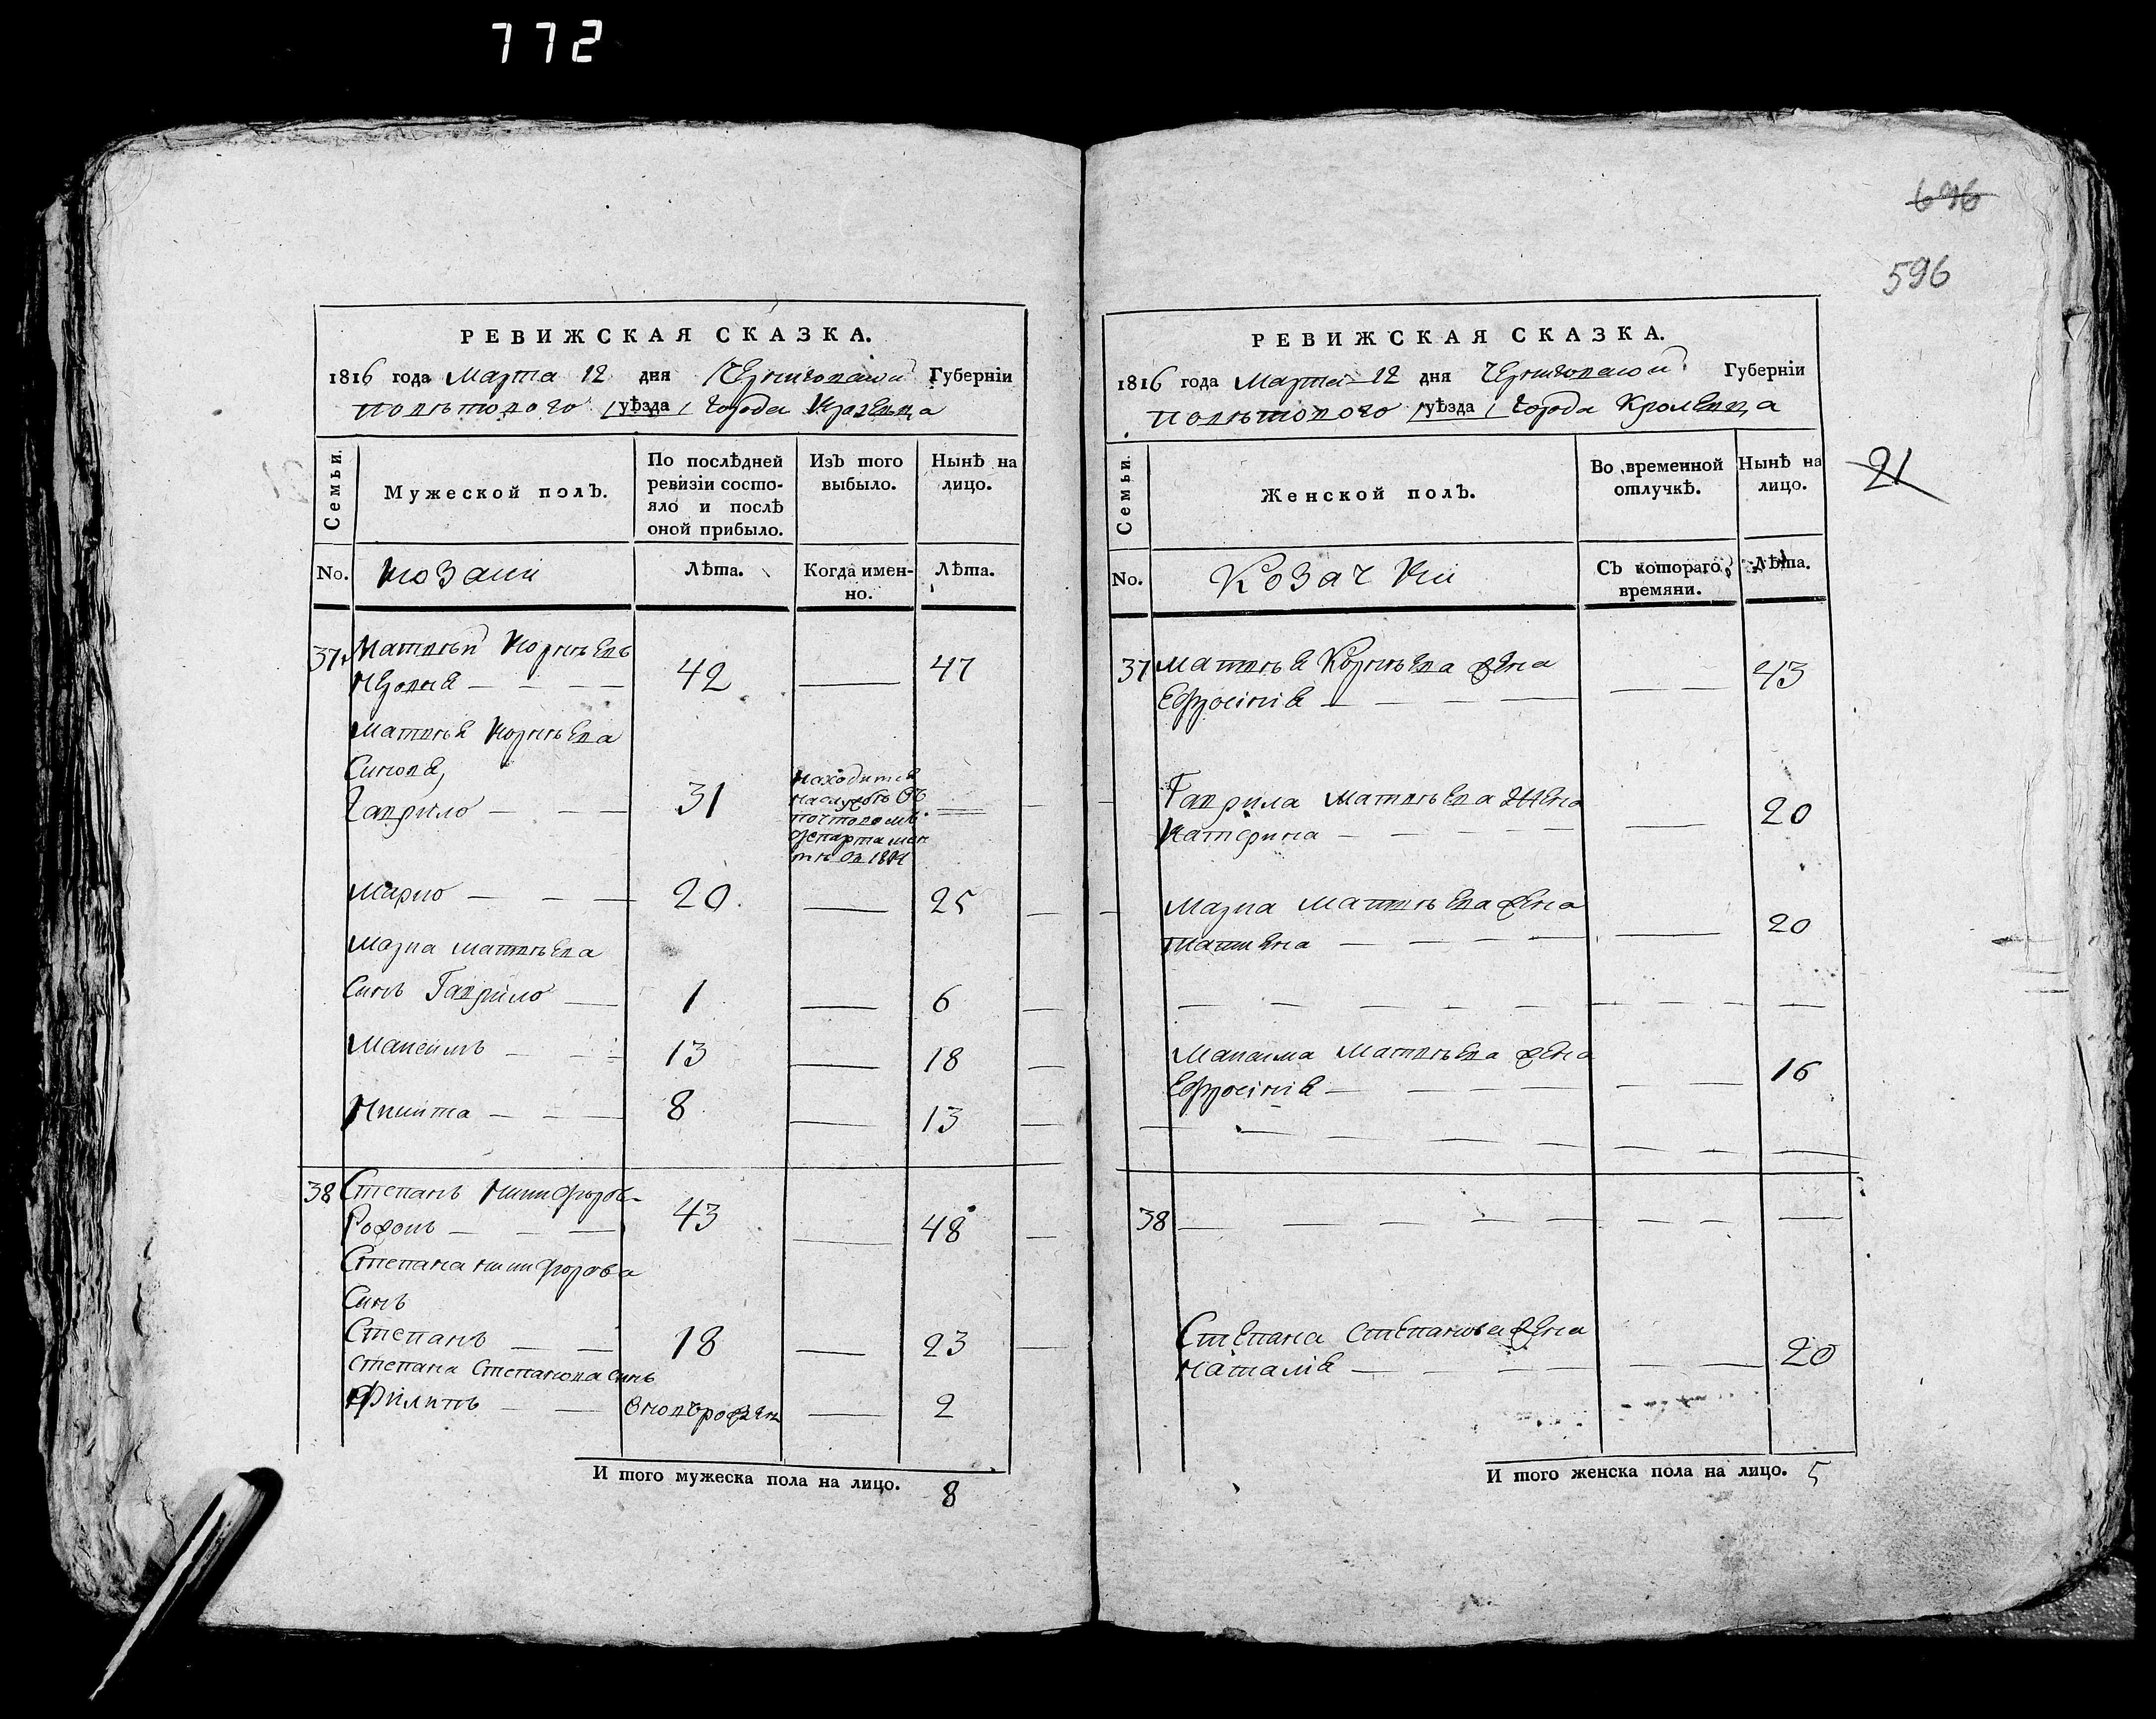 772
РЕВИЖСКАЯ СКАЗКА.
1816 года Марта 12 дня Черниговской Губерніи
повѣтового уѣзда города
Семьи.
Мужеской полъ.
По послѣдней ревизіи состо-
яло и послѣ
оной прибыло.
Изъ того
выбыло.
Нынѣ на
лицо.
No.
козаки
Лѣта.
Когда имен-
но.
Лѣта.
37 Матвѣй Корнѣевъ
42 — 47
Матвѣя Корнѣева
Синовя,
Гаврило — — — 31
находится
на службѣ въ
почтовомъ
департамен
тѣ
Марко — — — 20. — 25
Марка Матвѣева
Синъ Гаврило — 1 — 6
Максимъ — — 13 — 18
Никита — — — 8 — 13
38 Степанъ Никифоров
43 — 48
Степана Никифорова
Синъ
Степанъ — — 18 — 23
Степана Степанова Синъ
Филипъ — — вновь рожден — 2
И того мужеска пола на лицо. 8
696
596
РЕВИЖСКАЯ СКАЗКА.
1816 года Марта 12 дня Черниговской Губерніи
повѣтового уѣзда города Кролевца
21
Семьи.
Женской полъ.
Во временной
отлучкѣ.
Нынѣ на
лицо.
No.
Козачки
Съ котораго
времяни.
Лѣта.
37 Матвѣя Корнѣева жена
Ефросінія — — — — 43
Гаврила Матвѣева жена
Катерина — — — — 20
Марка Матвѣева жена
Татіяна — — — — 20
Максима Матвѣева жена
Ефросінія — — — 16
38 — — — — —
Степана Степанова жена
Наталія — — — 20
И того женска пола на лицо. 5